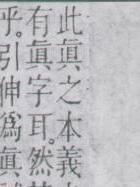 此眞之本義
有眞字耳。然其
乎。引伸爲眞